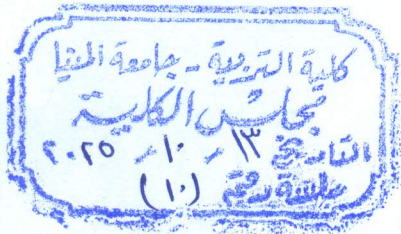 كلية التربية - جامعة المنيا
مجلس الكلية
التاريخ ١٣ / ١٠ / ٢٠٢٥
جلسة رقم (١٠)